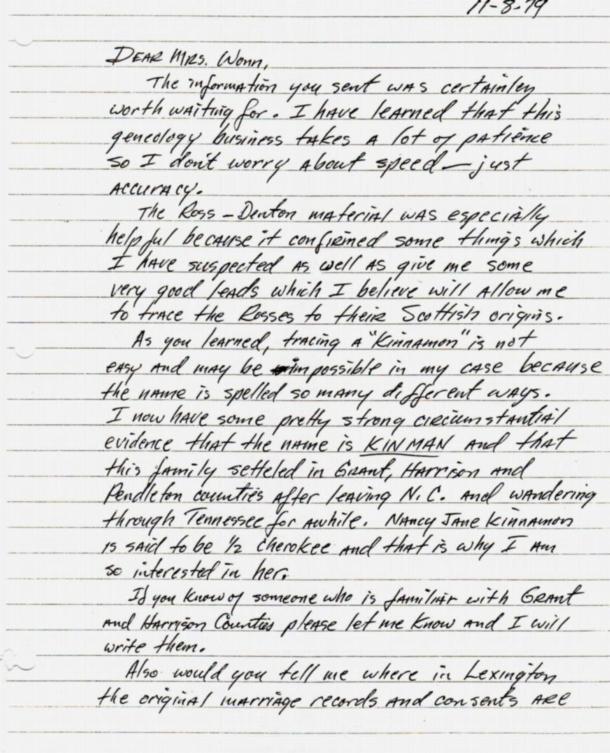 11-8-79
Dear Mrs. Wonn,
The information you sent was certainley
worth waiting for. I have learned that this
geneology business takes a lot of patience
so I don't worry about speed — just
accuracy.
The Ross-Denton material was especially
helpful because it confirmed some things which
I have suspected as well as give me some
very good leads which I believe will allow me
to trace the Rosses to their Scottish origins.
As you learned, tracing a "Kinnamon" is not
easy and may be impossible in my case because
the name is spelled so many different ways.
I now have some pretty strong circumstantial
evidence that the name is KINMAN and that
this family setteled in Grant, Harrison and
Pendleton counties after leaving N.C. and wandering
through Tennessee for awhile. Nancy Jane Kinnamon
is said to be 1/2 Cherokee and that is why I am
so interested in her.
If you know of someone who is familiar with Grant
and Harrison Counties please let me know and I will
write them.
Also would you tell me where in Lexington
the original marriage records and consents are